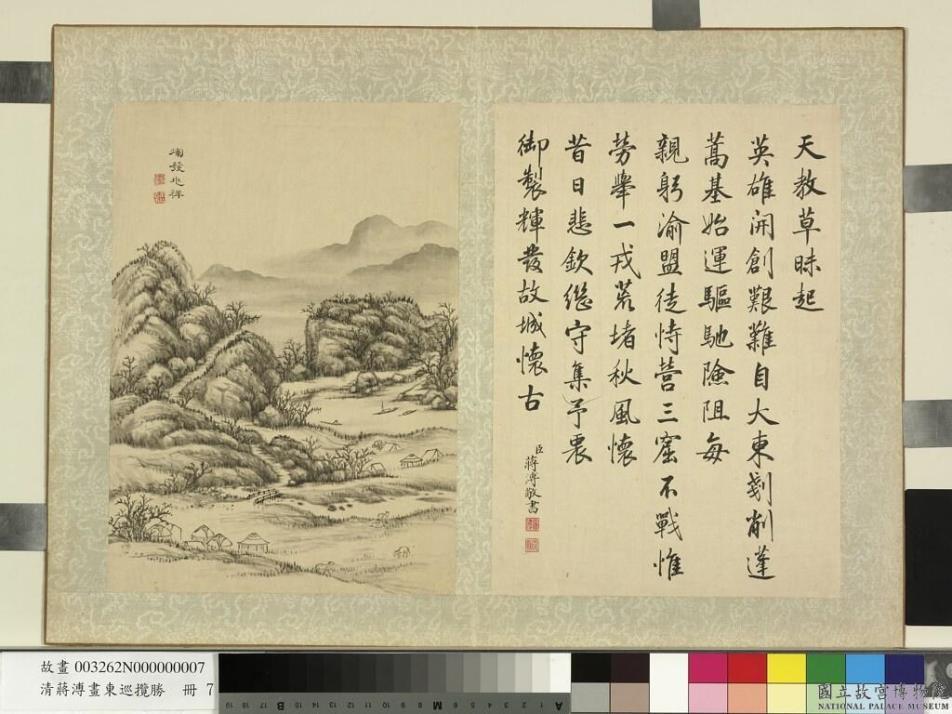 天教草昧起
英雄開創艱難自大東剗削蓬
蒿基始運驅馳險阻每
親躬渝盟徒恃營三窟不戰惟
勞舉一戎荒堵秋風懷
昔日悲欽繼守集予衷
御製輝發故城懷古
臣蔣溥敬書
輝發兆祥
故畫 003262N000000007
清蔣溥畫東巡攬勝 冊 7
國立故宮博物院
NATIONAL PALACE MUSEUM